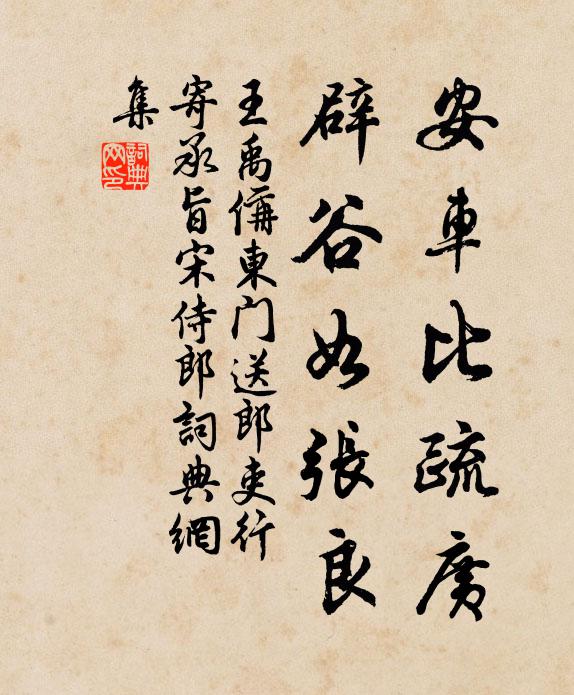 安車比疏廣
辟谷如張良
王禹偁東門送郎吏行
寄承旨宋侍郎詞典網
集
詞典
网印